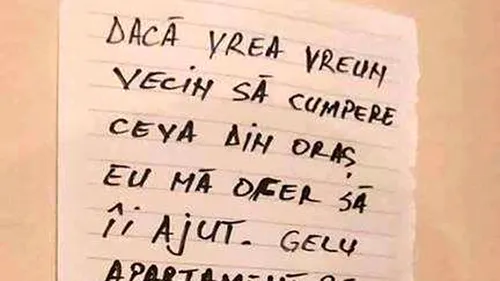 DACĂ VREA VREUN
VECIN SĂ CUMPERE
CEVA DIN ORAȘ
EU MĂ OFER SĂ
ÎI AJUT. GELU
APARTAMENT